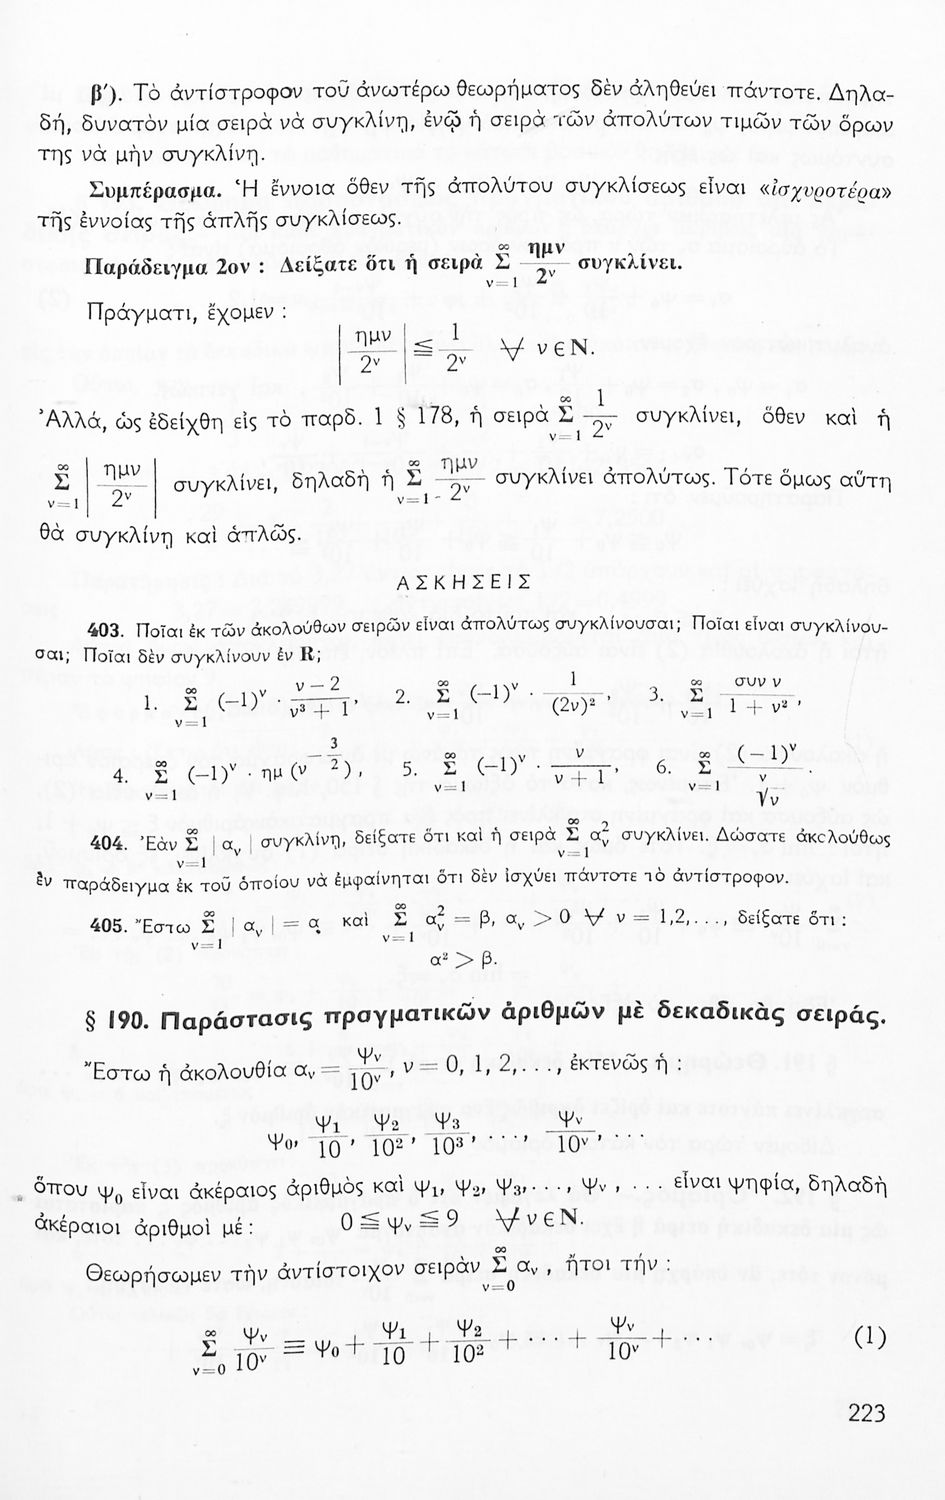 β'). Τὸ ἀντίστροφον τοῦ ἀνωτέρω θεωρήματος δὲν ἀληθεύει πάντοτε. Δηλα-
δή, δυνατὸν μία σειρὰ νὰ συγκλίνῃ, ἐνῷ ἡ σειρὰ τῶν ἀπολύτων τιμῶν τῶν ὅρων
της νὰ μὴν συγκλίνῃ.
Συμπέρασμα. Ἡ ἔννοια ὅθεν τῆς ἀπολύτου συγκλίσεως εἶναι «ἰσχυροτέρα»
τῆς ἐννοίας τῆς ἁπλῆς συγκλίσεως.
Παράδειγμα 2ον : Δείξατε ὅτι ἡ σειρὰ Σ_{ν=1}^{∞} ημν/2^ν συγκλίνει.
Πράγματι, ἔχομεν :
|ημν/2^ν| ≦ 1/2^ν ∀ ν ∈ N.
Ἀλλά, ὡς ἐδείχθη εἰς τὸ παρδ. 1 § 178, ἡ σειρὰ Σ_{ν=1}^{∞} 1/2^ν συγκλίνει, ὅθεν καὶ ἡ
Σ_{ν=1}^{∞} |ημν/2^ν| συγκλίνει, δηλαδὴ ἡ Σ_{ν=1}^{∞} ημν/2^ν συγκλίνει ἀπολύτως. Τότε ὅμως αὕτη
θὰ συγκλίνῃ καὶ ἁπλῶς.
ΑΣΚΗΣΕΙΣ
403. Ποῖαι ἐκ τῶν ἀκολούθων σειρῶν εἶναι ἀπολύτως συγκλίνουσαι; Ποῖαι εἶναι συγκλίνου-
σαι; Ποῖαι δὲν συγκλίνουν ἐν R;
1. Σ_{ν=1}^{∞} (−1)^ν · (ν − 2)/(ν³ + 1), 2. Σ_{ν=1}^{∞} (−1)^ν · 1/(2ν)², 3. Σ_{ν=1}^{∞} συν ν/(1 + ν²),
4. Σ_{ν=1}^{∞} (−1)^ν · ημ (ν^{−3/2}), 5. Σ_{ν=1}^{∞} (−1)^ν · ν/(ν + 1), 6. Σ_{ν=1}^{∞} (−1)^ν/^ν√ν.
404. Ἐὰν Σ_{ν=1}^{∞} |α_ν| συγκλίνῃ, δείξατε ὅτι καὶ ἡ σειρὰ Σ_{ν=1}^{∞} α_ν² συγκλίνει. Δώσατε ἀκολούθως
ἓν παράδειγμα ἐκ τοῦ ὁποίου νὰ ἐμφαίνηται ὅτι δὲν ἰσχύει πάντοτε τὸ ἀντίστροφον.
405. Ἔστω Σ_{ν=1}^{∞} |α_ν| = α καὶ Σ_{ν=1}^{∞} α_ν² = β, α_ν > 0 ∀ ν = 1,2,..., δείξατε ὅτι :
α² > β.
§ 190. Παράστασις πραγματικῶν ἀριθμῶν μὲ δεκαδικὰς σειράς.
Ἔστω ἡ ἀκολουθία α_ν = ψ_ν/10^ν, ν = 0, 1, 2,..., ἐκτενῶς ἡ :
ψ₀, ψ₁/10, ψ₂/10², ψ₃/10³, ..., ψ_ν/10^ν, ...
ὅπου ψ₀ εἶναι ἀκέραιος ἀριθμὸς καὶ ψ₁, ψ₂, ψ₃,..., ψ_ν, ... εἶναι ψηφία, δηλαδὴ
ἀκέραιοι ἀριθμοὶ μέ : 0 ≦ ψ_ν ≦ 9 ∀ ν ∈ N.
Θεωρήσωμεν τὴν ἀντίστοιχον σειρὰν Σ_{ν=0}^{∞} α_ν, ἤτοι τήν :
Σ_{ν=0}^{∞} ψ_ν/10^ν ≡ ψ₀ + ψ₁/10 + ψ₂/10² + ··· + ψ_ν/10^ν + ··· (1)
223